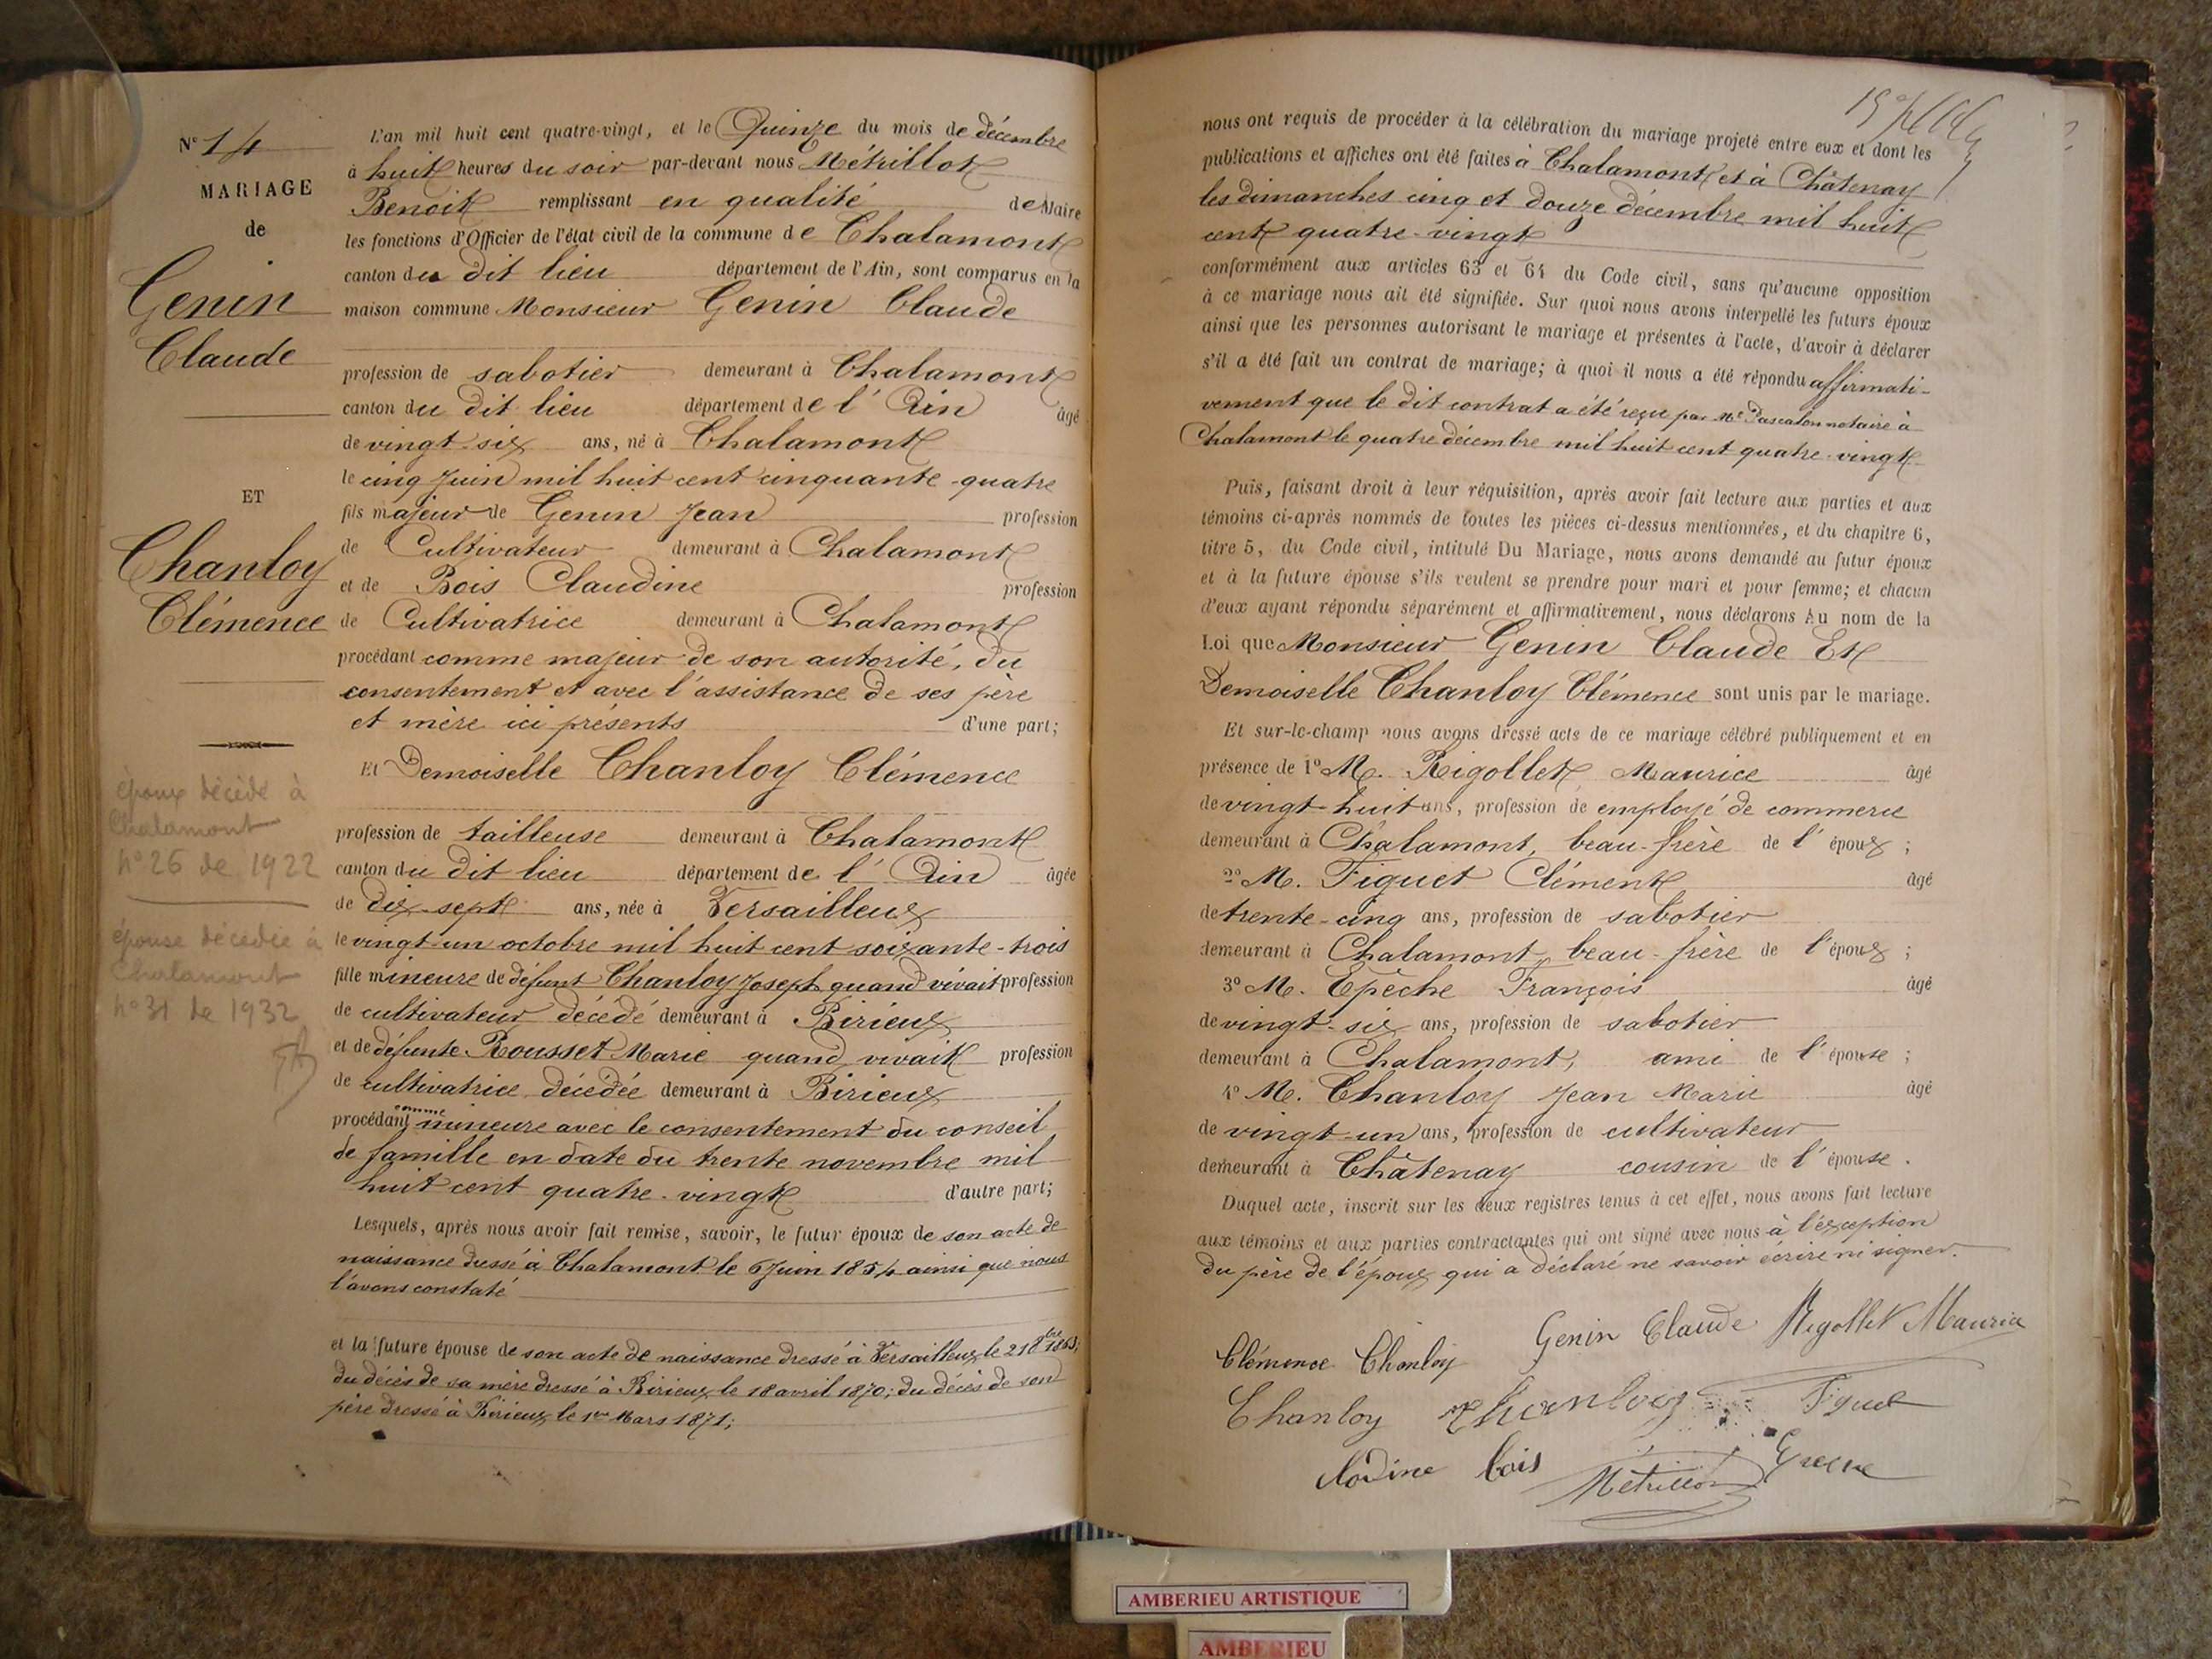 N° 14
MARIAGE
de
Genin
Claude
ET
Chanloy
Clémence
époux décédé à
Chalamont
n° 26 de 1922
épouse décédée à
Chalamont
n° 31 de 1932
L'an mil huit cent quatre-vingt, et le Quinze du mois de décembre
à huit heures du soir par-devant nous Métrillot
Benoit remplissant en qualité de Maire
les fonctions d'Officier de l'état civil de la commune de Chalamont
canton du dit lieu département de l'Ain, sont comparus en la
maison commune Monsieur Genin Claude
profession de sabotier demeurant à Chalamont
canton du dit lieu département de l'Ain âgé
de vingt-six ans, né à Chalamont
le cinq Juin mil huit cent cinquante-quatre
fils majeur de Genin Jean profession
de Cultivateur demeurant à Chalamont
et de Bois Claudine profession
de Cultivatrice demeurant à Chalamont
procédant comme majeur de son autorité, du
consentement et avec l'assistance de ses père
et mère ici présents d'une part;
Et Demoiselle Chanloy Clémence
profession de tailleuse demeurant à Chalamont
canton du dit lieu département de l'Ain âgée
de dix-sept ans, née à Versailleux
le vingt-un octobre mil huit cent soixante-trois
fille mineure de défunt Chanloy Joseph quand vivait profession
de cultivateur décédé demeurant à Birieux
et de défunte Rousset Marie quand vivait profession
de cultivatrice décédée demeurant à Birieux
procédant comme mineure avec le consentement du conseil
de famille en date du trente novembre mil
huit cent quatre-vingt d'autre part;
Lesquels, après nous avoir fait remise, savoir, le futur époux de son acte de
naissance dressé à Chalamont le 6 Juin 1854 ainsi que nous
l'avons constaté
et la future épouse de son acte de naissance dressé à Versailleux le 21 8bre 1863;
du décès de sa mère dressé à Birieux le 18 avril 1870; du décès de son
père dressé à Birieux le 1er Mars 1871;
nous ont requis de procéder à la célébration du mariage projeté entre eux et dont les
publications et affiches ont été faites à Chalamont et à Châtenay
les dimanches cinq et douze décembre mil huit
cent quatre-vingt
conformément aux articles 63 et 64 du Code civil, sans qu'aucune opposition
à ce mariage nous ait été signifiée. Sur quoi nous avons interpellé les futurs époux
ainsi que les personnes autorisant le mariage et présentes à l'acte, d'avoir à déclarer
s'il a été fait un contrat de mariage; à quoi il nous a été répondu affirmati-
vement que le dit contrat a été reçu par Me Pascalon notaire à
Chalamont le quatre décembre mil huit cent quatre-vingt
Puis, faisant droit à leur réquisition, après avoir fait lecture aux parties et aux
témoins ci-après nommés de toutes les pièces ci-dessus mentionnées, et du chapitre 6,
titre 5, du Code civil, intitulé Du Mariage, nous avons demandé au futur époux
et à la future épouse s'ils veulent se prendre pour mari et pour femme; et chacun
d'eux ayant répondu séparément et affirmativement, nous déclarons Au nom de la
Loi que Monsieur Genin Claude Et
Demoiselle Chanloy Clémence sont unis par le mariage.
Et sur-le-champ nous avons dressé acts de ce mariage célébré publiquement et en
présence de 1° M. Rigollet Maurice âgé
de vingt-huit ans, profession de employé de commerce
demeurant à Chalamont, beau-frère de l'époux;
2° M. Figuet Clément âgé
de trente-cinq ans, profession de sabotier
demeurant à Chalamont, beau-frère de l'époux;
3° M. Epèche François âgé
de vingt-six ans, profession de sabotier
demeurant à Chalamont, ami de l'épouse;
4° M. Chanloy Jean Marie âgé
de vingt-un ans, profession de cultivateur
demeurant à Châtenay cousin de l'épouse.
Duquel acte, inscrit sur les deux registres tenus à cet effet, nous avons fait lecture
aux témoins et aux parties contractantes qui ont signé avec nous à l'exception
du père de l'époux qui a déclaré ne savoir écrire ni signer.
Clémence Chanloy Genin Claude Rigollet Maurice
Chanloy Chanloy Figuet
Clodine bois Métrillot
AMBERIEU ARTISTIQUE
AMBERIEU